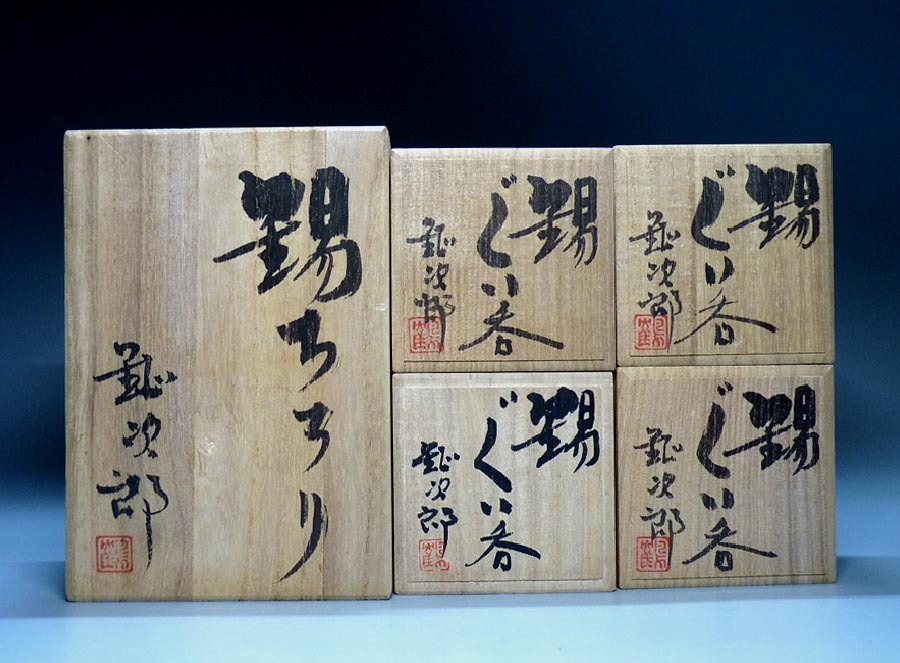 錫ちろり
次郎
錫
ぐい呑
次郎
錫
ぐい呑
次郎
錫
ぐい呑
次郎
錫
ぐい呑
次郎